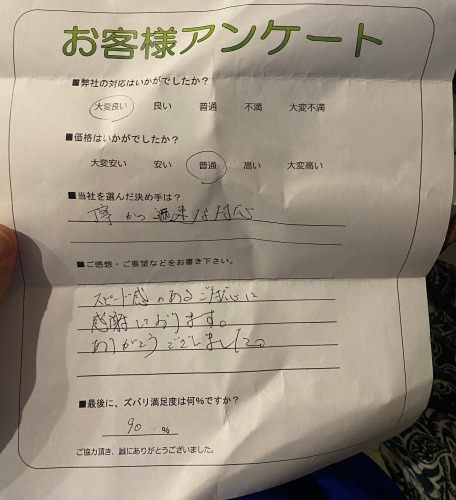 お客様アンケート
■弊社の対応はいかがでしたか?
大変良い 良い 普通 不満 大変不満
■価格はいかがでしたか?
大変安い 安い 普通 高い 大変高い
■当社を選んだ決め手は?
丁寧かつ迅速な対応
■ご感想・ご要望などをお書き下さい。
スピード感のあるご対応に
感謝しております。
ありがとうございました。
■最後に、ズバリ満足度は何%ですか?
90 %
ご協力頂き、誠にありがとうございました。